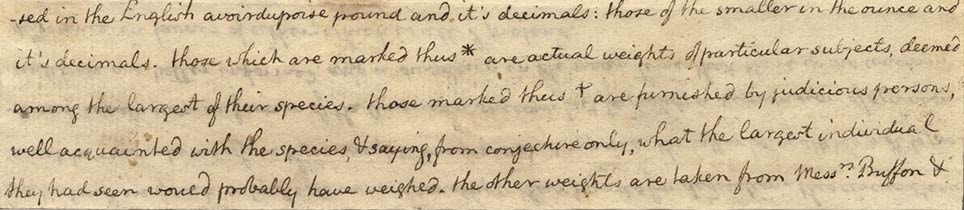 -sed in the English avoirdupoise pound and it's decimals: those of the smaller in the ounce and
it's decimals. those which are marked thus * are actual weights of particular subjects, deemed
among the largest of their species. those marked thus † are furnished by judicious persons,
well acquainted with the species, & saying, from conjecture only, what the largest individual
they had seen would probably have weighed. the other weights are taken from Messrs. Buffon &